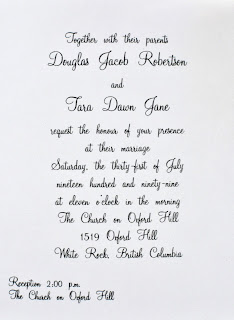 Together with their parents
Douglas Jacob Robertson
and
Tara Dawn Jane
request the honour of your presence
at their marriage
Saturday, the thirty-first of July
nineteen hundred and ninety-nine
at eleven o'clock in the morning
The Church on Oxford Hill
1519 Oxford Hill
White Rock, British Columbia
Reception 2:00 p.m.
The Church on Oxford Hill